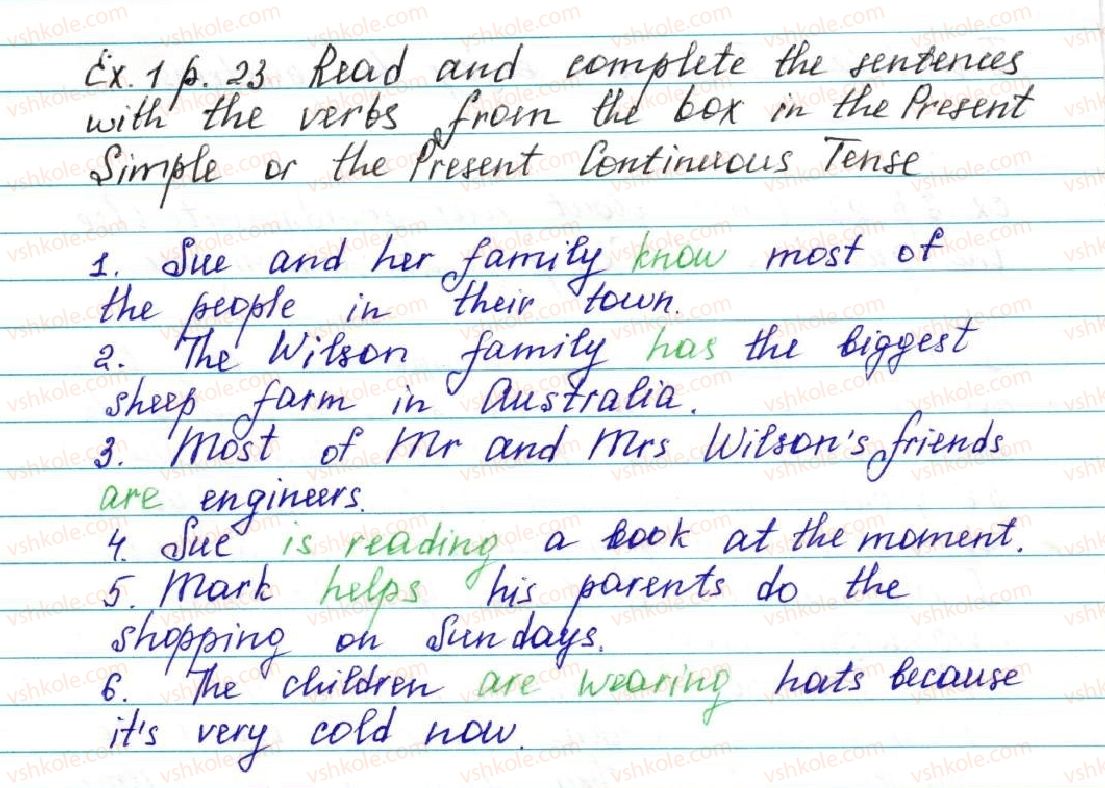 Ex. 1 p. 23 Read and complete the sentences
with the verbs from the box in the Present
Simple or the Present Continuous Tense
1. Sue and her family know most of
the people in their town.
2. The Wilson family has the biggest
sheep farm in Australia.
3. Most of Mr and Mrs Wilson's friends
are engineers.
4. Sue is reading a book at the moment.
5. Mark helps his parents do the
shopping on Sundays.
6. The children are wearing hats because
it's very cold now.